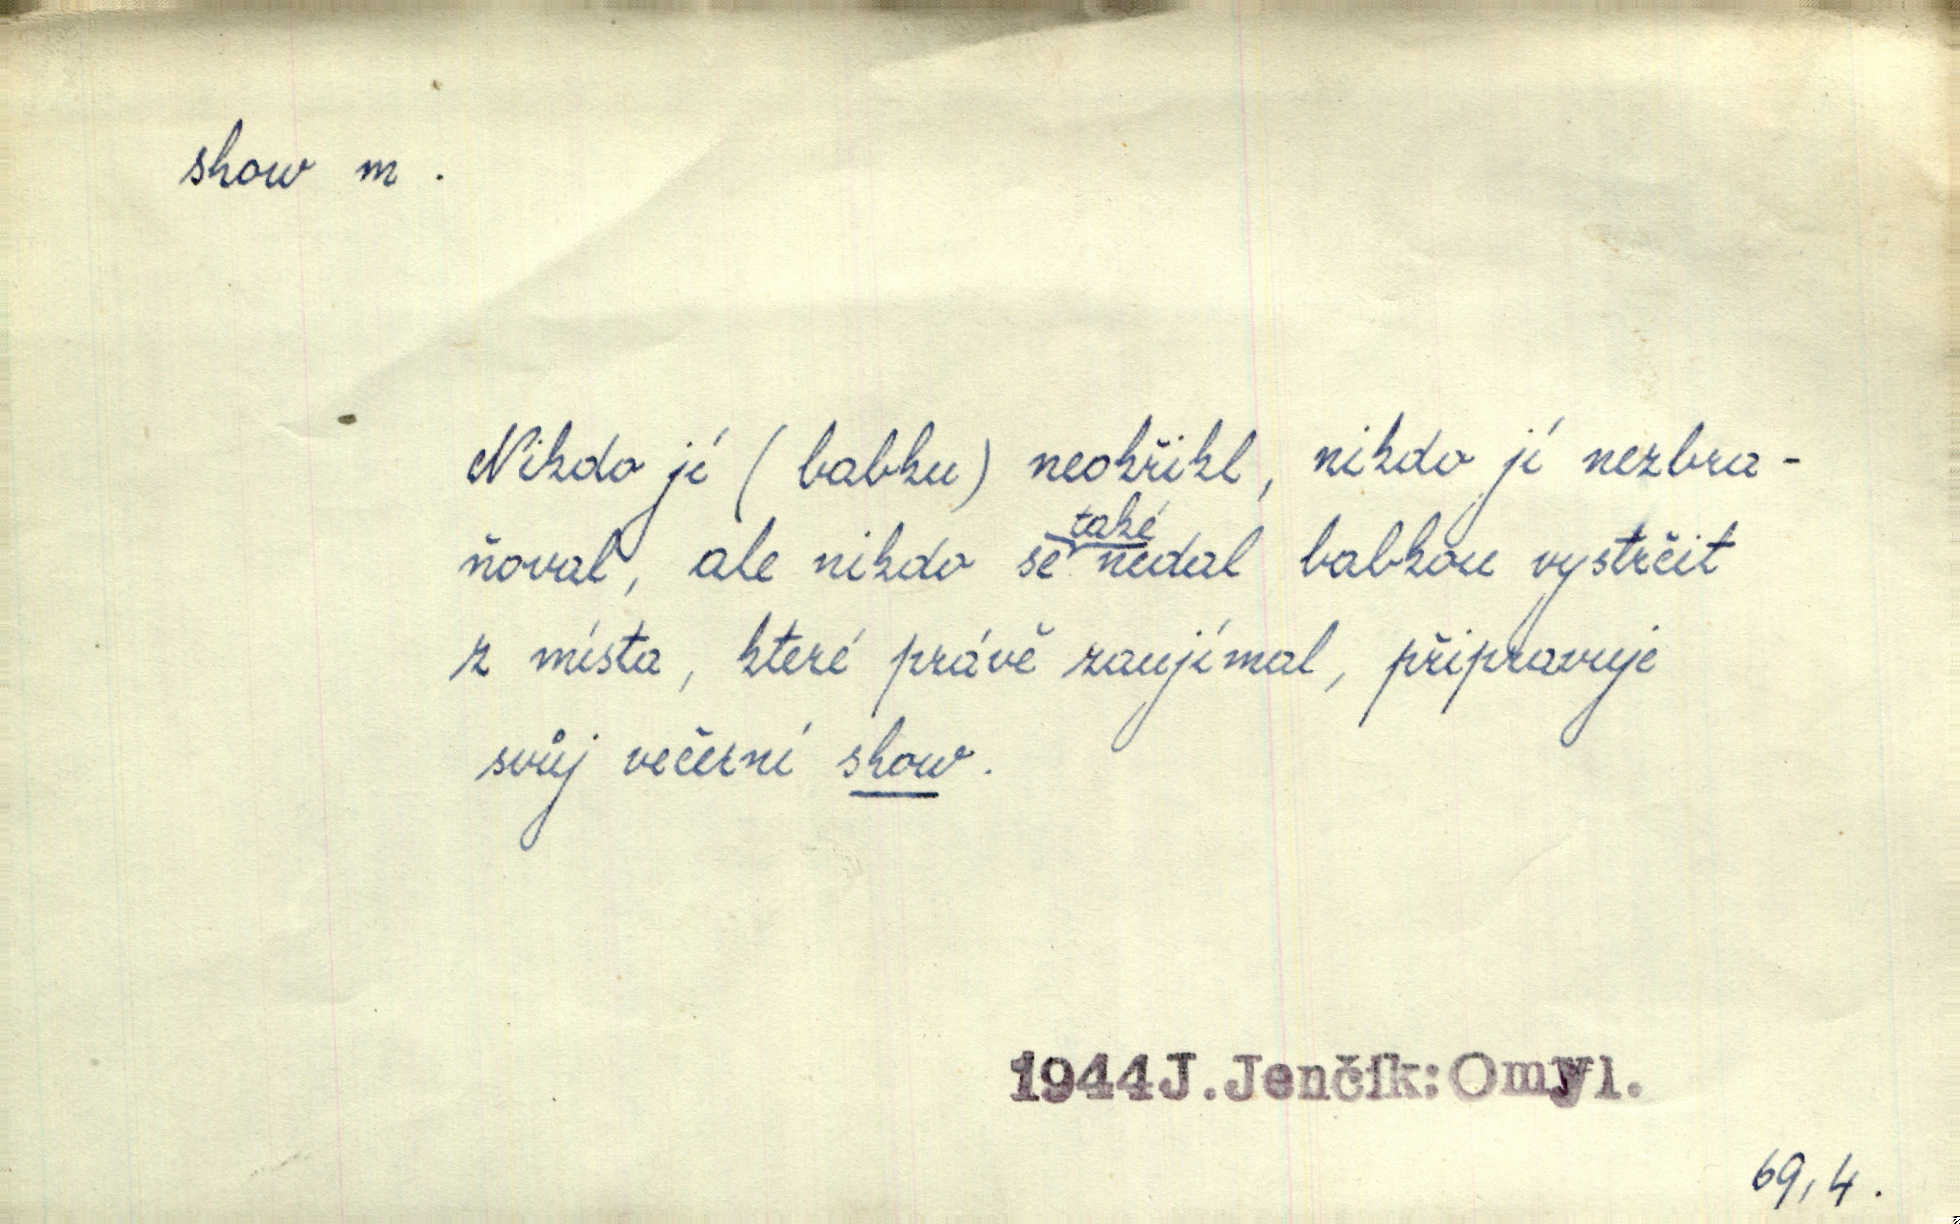 show m.
Nikdo jí (babku) neokřikl, nikdo jí nezbra-
ňoval, ale nikdo se také nedal babkou vystrčit
z místa, které právě zaujímal, připravuje
svůj večerní show.
1944 J. Jenčík: Omyl.
69,4.